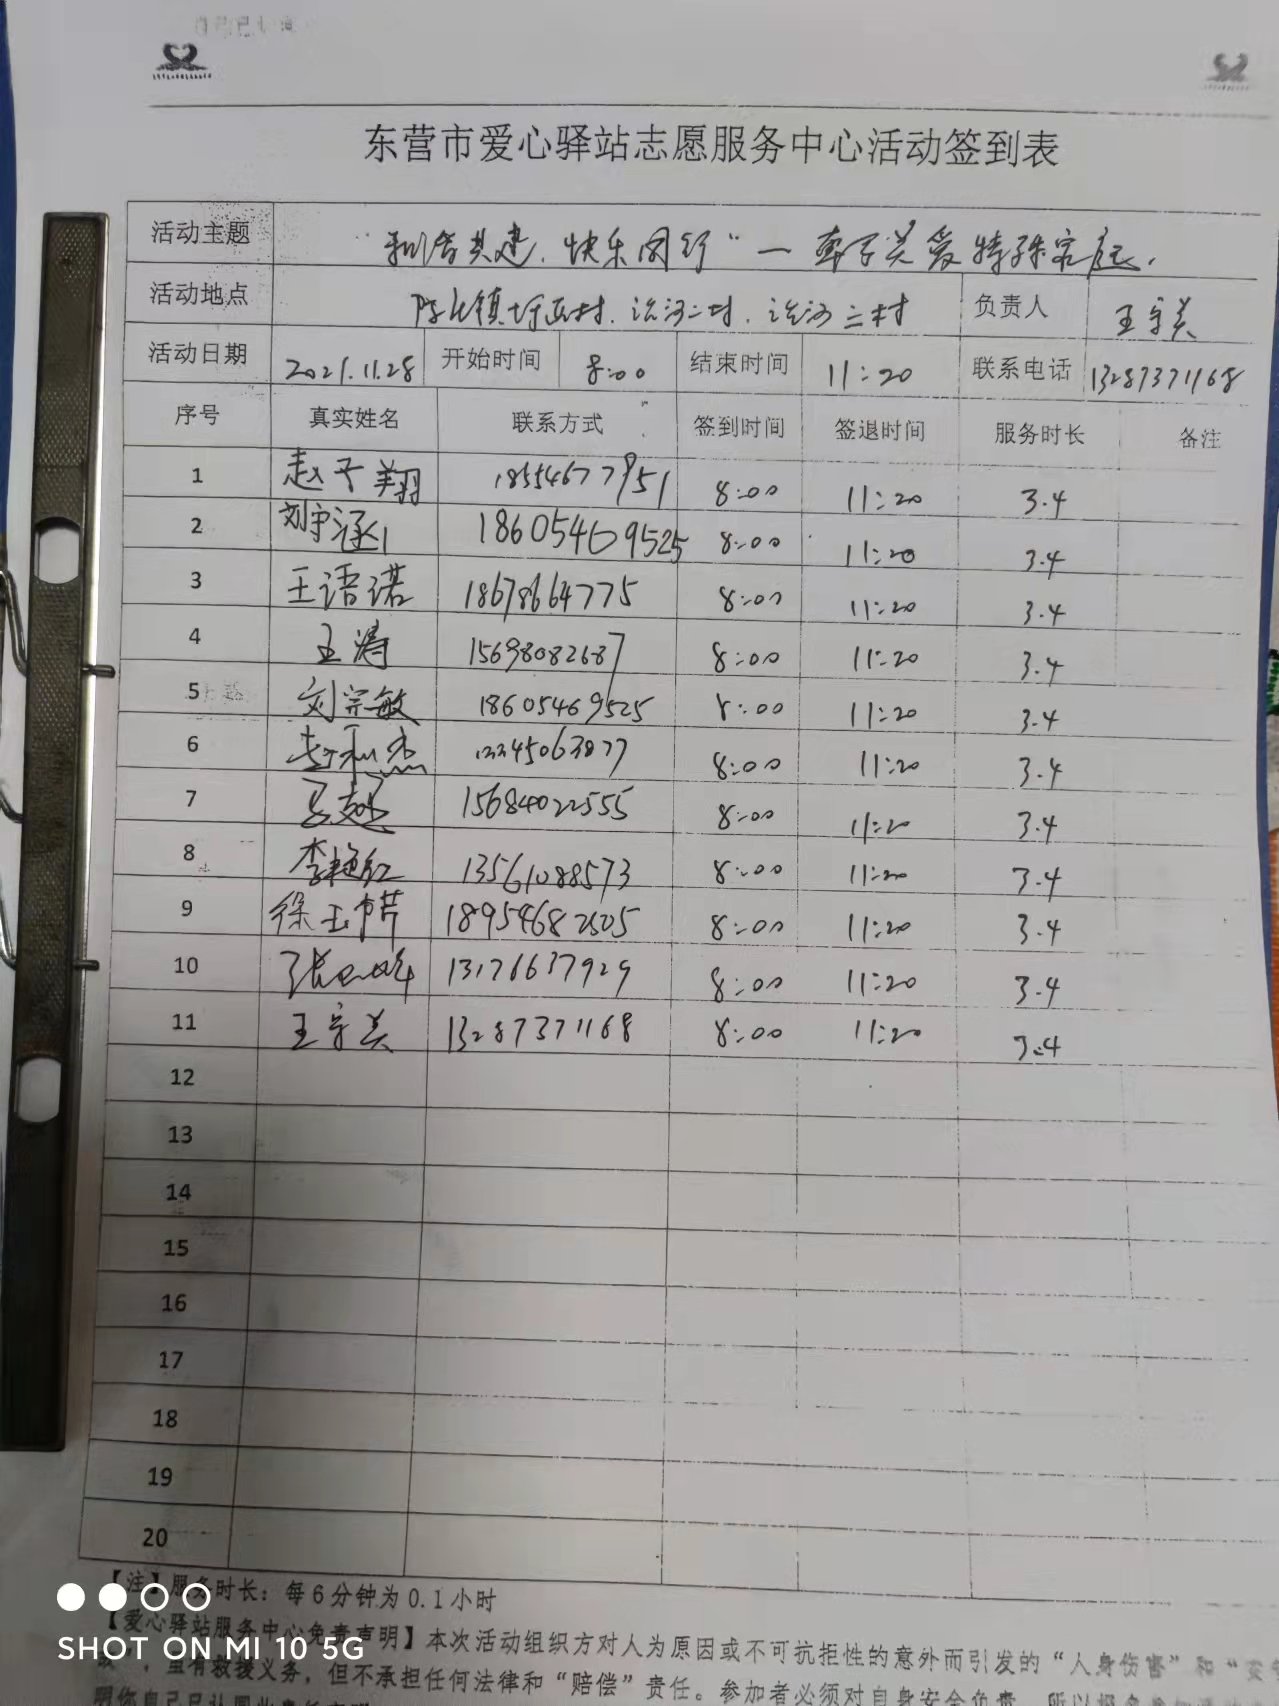 东营市爱心驿站志愿服务中心活动签到表
活动主题 共建、快乐同行" 关爱特殊家庭.
活动地点 村. 二村. 三村 负责人 王守美
活动日期 2021.11.28 开始时间 8:00 结束时间 11:20 联系电话 13287371168
序号 真实姓名 联系方式 签到时间 签退时间 服务时长 备注
1 赵子翔 18554677951 8:00 11:20 3.4
2 刘宇涵 18605469525 8:00 11:20 3.4
3 王语诺 18678664775 8:00 11:20 3.4
4 王涛 15698082687 8:00 11:20 3.4
5 刘宗敏 18605469525 8:00 11:20 3.4
6 8:00 11:20 3.4
7 15684022555 8:00 11:20 3.4
8 李艳红 13561088573 8:00 11:20 3.4
9 徐玉芹 18954682505 8:00 11:20 3.4
10 13176637929 8:00 11:20 3.4
11 王守美 13287371168 8:00 11:20 3.4
12
13
14
15
16
17
18
19
20
【注】服务时长：每6分钟为0.1小时
【爱心驿站服务中心免责声明】本次活动组织方对人为原因或不可抗拒性的意外而引发的“人身伤害”和“交
，虽有救援义务，但不承担任何法律和“赔偿”责任。参加者必须对自身安全负责
SHOT ON MI 10 5G